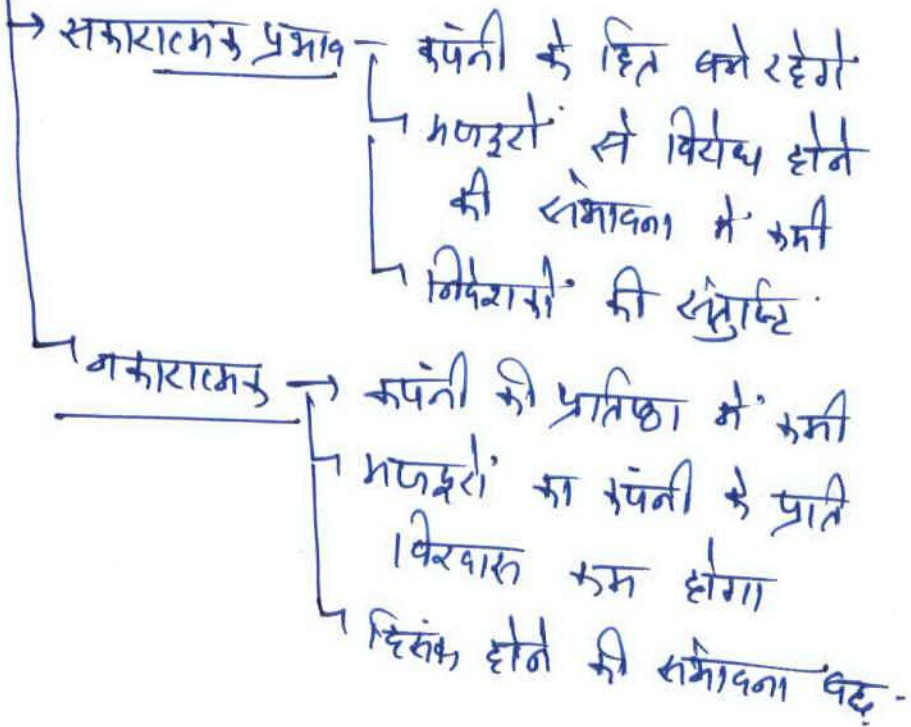 → सकारात्मक प्रभाव – कंपनी के हित बने रहेगें
मजदूरों से विरोध होने
की संभावना में कमी
निदेशकों की संतुष्टि
नकारात्मक → कंपनी की प्रतिष्ठा में कमी
मजदूरों का कंपनी के प्रति
विश्वास कम होगा
हिसंक होने की संभावना बढ़.